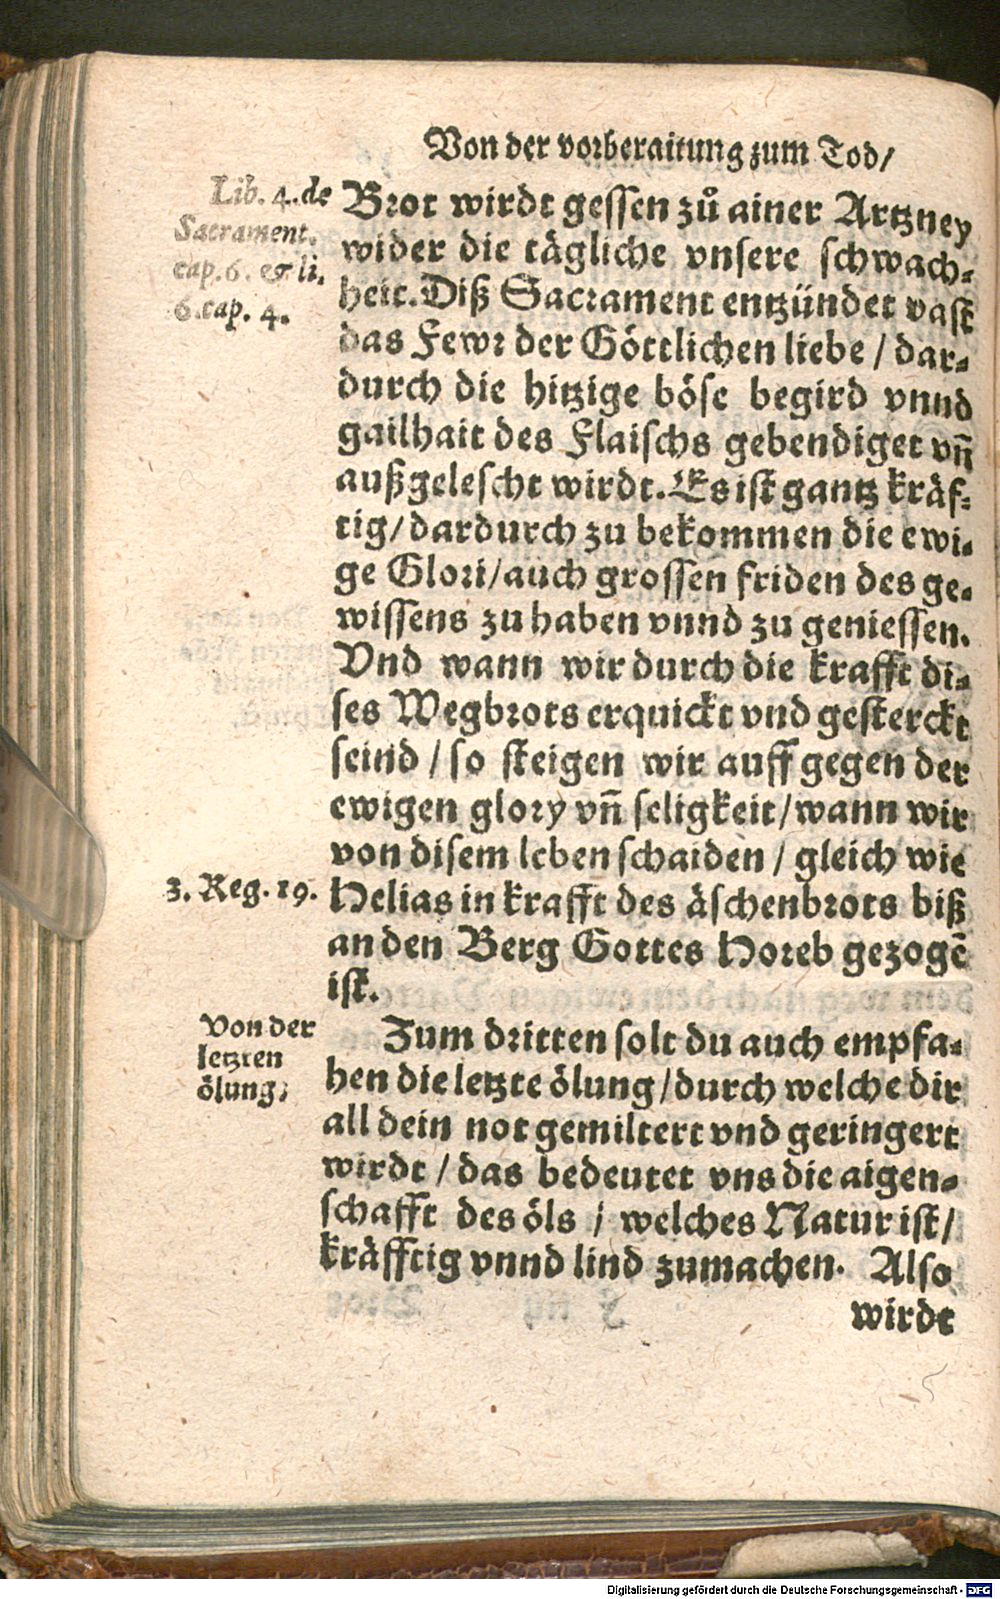 Von der vorberaitung zum Tod/
Lib. 4. de
Sacrament.
cap. 6. & li.
6. cap. 4.
Brot wirdt gessen zů ainer Artzney
wider die tägliche vnsere schwach-
heit. Diß Sacrament entzündet vast
das Fewr der Göttlichen liebe / dar-
durch die hitzige böse begird vnnd
gailhait des Flaischs gebendiget vñ
außgelescht wirdt. Es ist gantz kräf-
tig/ dardurch zu bekommen die ewi-
ge Glori/ auch grossen friden des ge-
wissens zu haben vnnd zu geniessen.
Vnd wann wir durch die krafft di-
ses Wegbrots erquickt vnd gesterckt
seind / so steigen wir auff gegen der
ewigen glory vñ seligkeit/ wann wir
von disem leben schaiden / gleich wie
3. Reg. 19.
Helias in krafft des äschenbrots biß
an den Berg Gottes Horeb gezogē
ist.
Von der
letzten
ölung.
Zum dritten solt du auch empfa-
hen die letzte ölung/ durch welche dir
all dein not gemiltert vnd geringert
wirdt / das bedeutet vns die aigen-
schafft des öls / welches Natur ist/
kräfftig vnnd lind zumachen. Also
wirdt
5
Digitalisierung gefördert durch die Deutsche Forschungsgemeinschaft - DFG